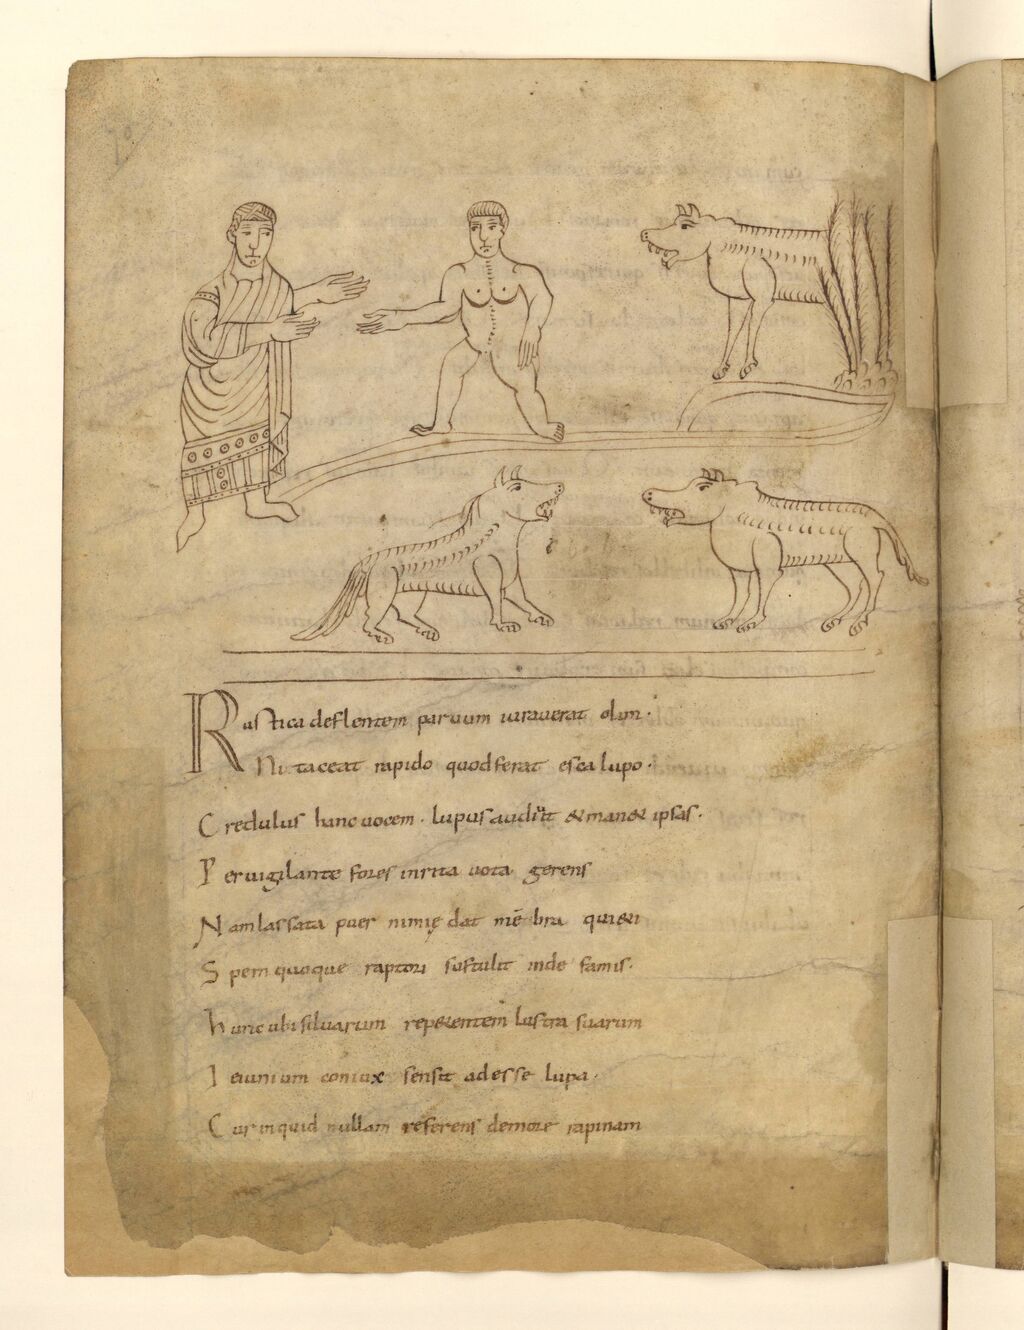 Rustica deflentem paruum iurauerat olim.
Ni taceat rapido quod ferat esca lupo.
Credulus hanc uocem. lupus audiit & man& ipsas.
Peruigilante fores inrita uota gerens
Nam lassata puer nimię dat mēbra quieti
Spem quoque raptori sustulit inde famis.
Hunc ubi siluarum rep&entem lustra suarum
Ieiunium coniux sensit adesse lupa.
Cur inquid nullam referens de more rapinam